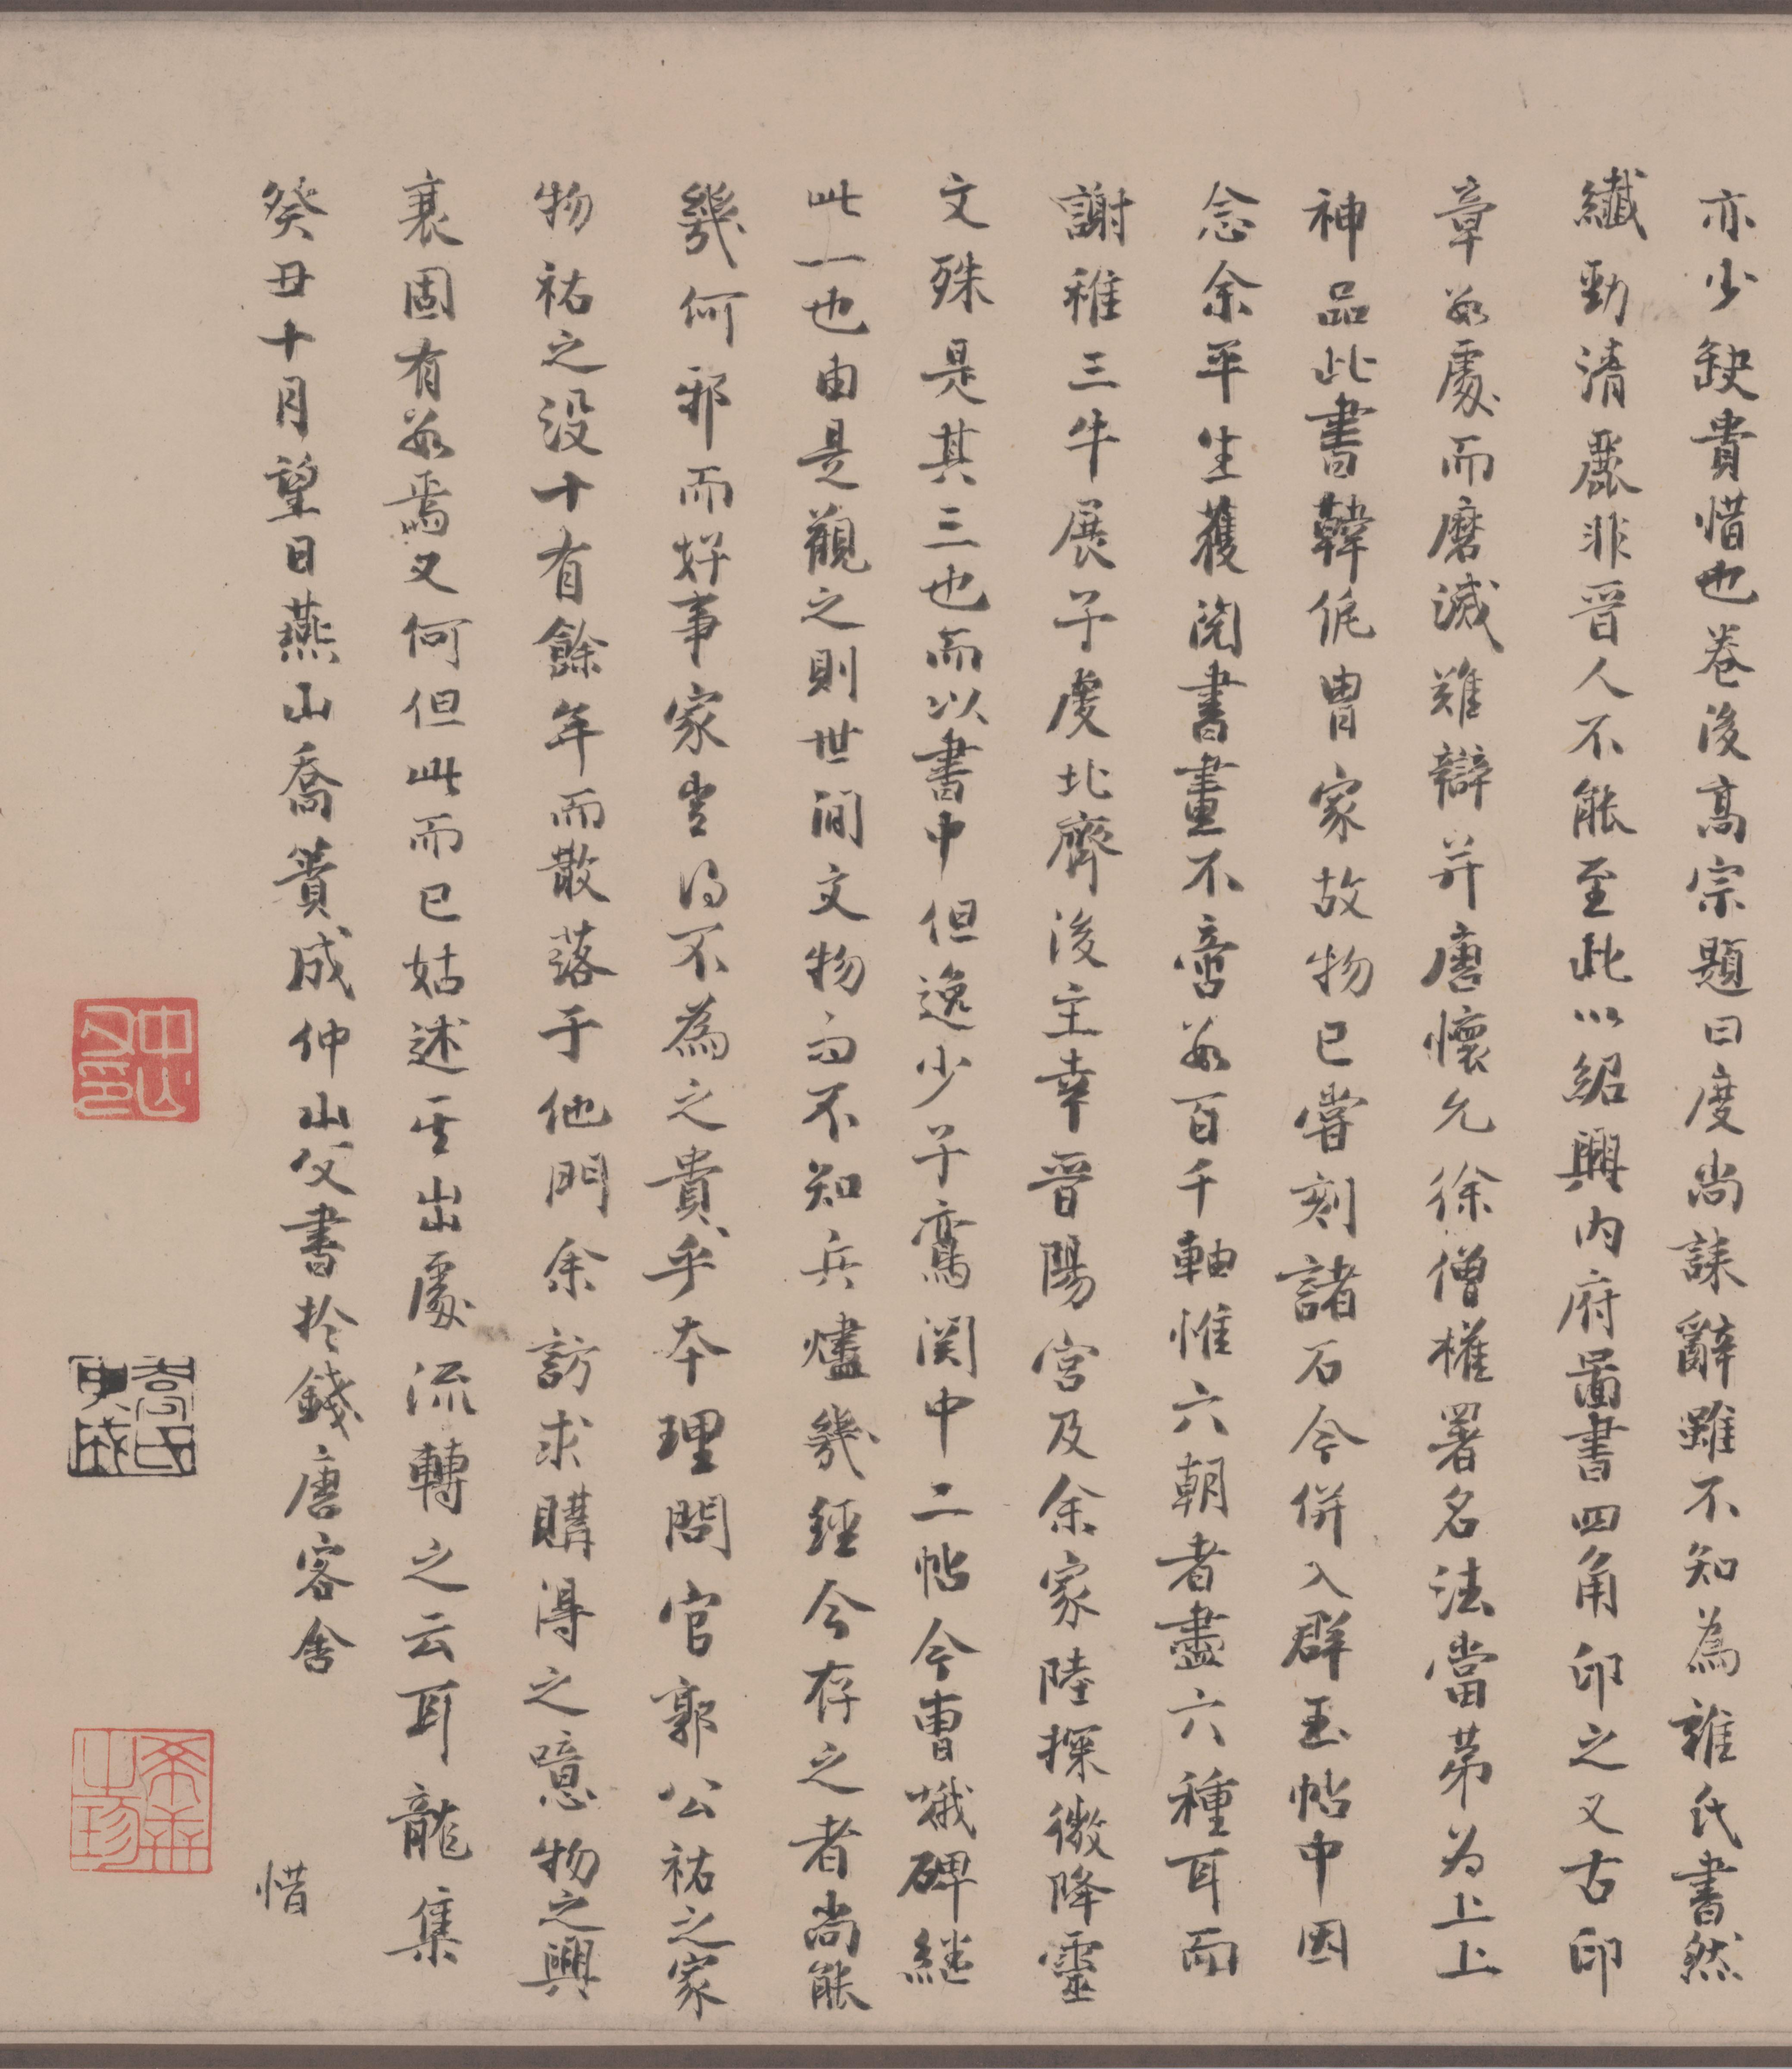 亦少缺貴惜也卷後高宗題曰度尚誄辭雖不知為誰氏書然
纖勁清麗非晉人不能至此以紹興內府圖書四角印之又古印
章數處而磨滅難辯并唐懷允徐僧權署名法當第為上上
神品此書韓侂胄家故物已嘗刻諸石今併入群玉帖中因
念余平生獲閱書畫不啻數百千軸惟六朝者盡六種耳而
謝稚三牛展子虔北齊後主幸晉陽宮及余家陸探微降靈
文殊是其三也而以書中但逸少子鸞関中二帖今曹娥碑継
此一也由是觀之則世間文物而不知兵燼幾經今存之者尚能
幾何邪而好事家豈得不為之貴乎本理問官郭公祐之家
物祐之沒十有餘年而散落于他門余訪求購得之噫物之興
衰固有數焉又何但此而已姑述其出處流轉之云耳龍集
癸丑十月望日燕山喬簣成仲山父書於錢唐客舍
惜
中山父印
喬氏簣成
希世之珍